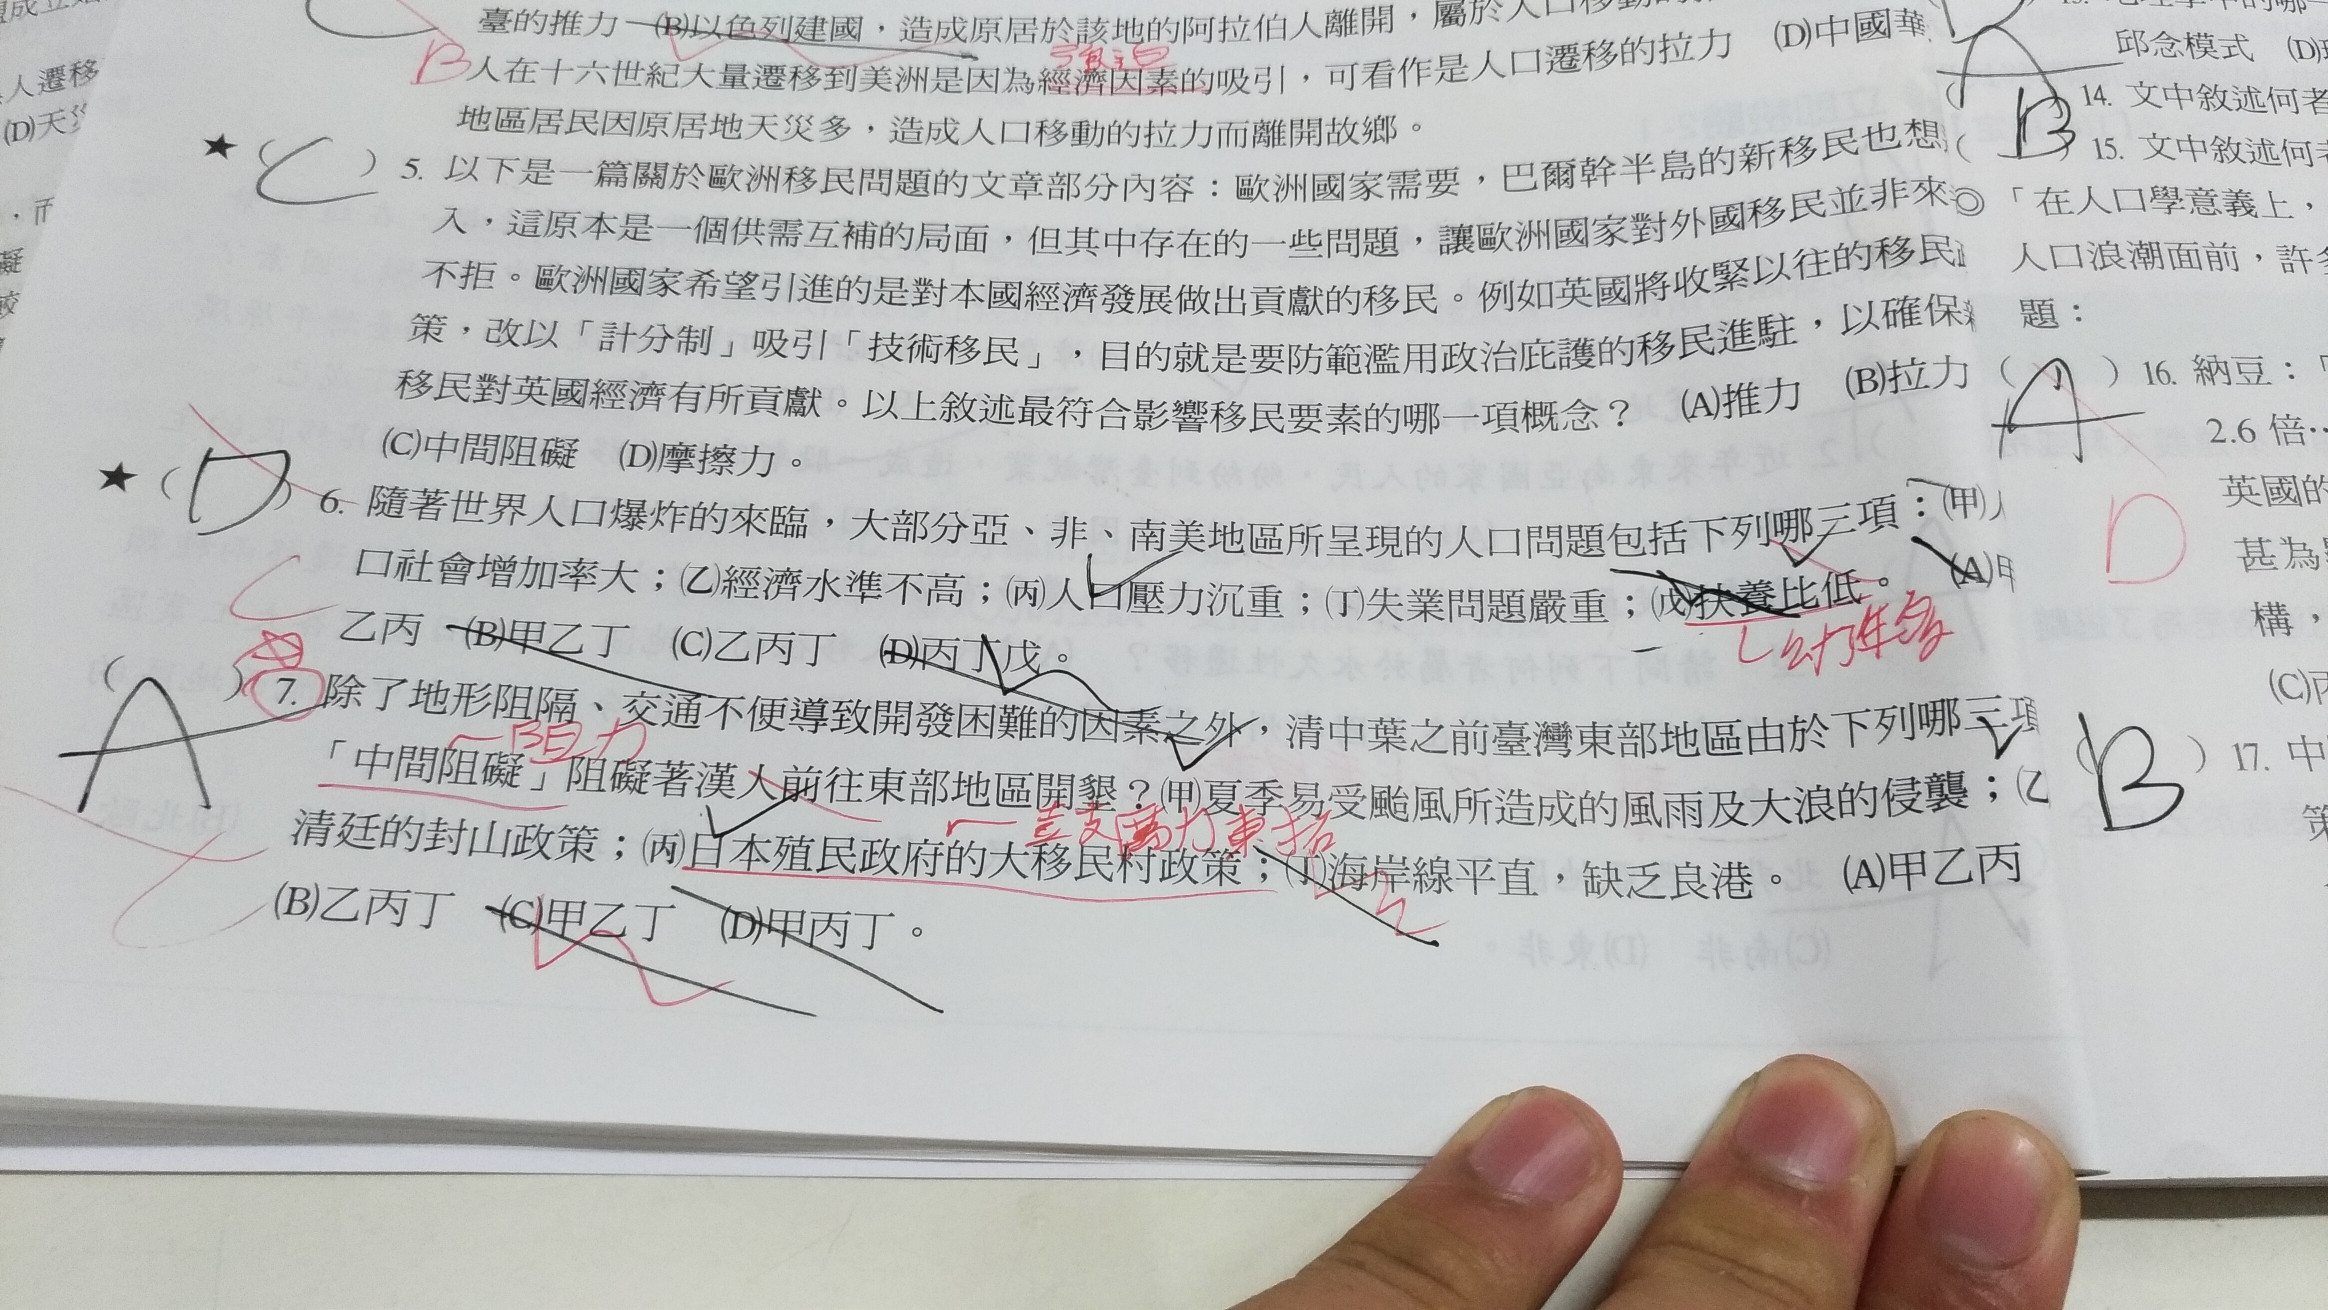 臺的推力 (B)以色列建國，造成原居於該地的阿拉伯人離開，屬於人口移動的
人在十六世紀大量遷移到美洲是因為經濟因素的吸引，可看作是人口遷移的拉力 (D)中國華
地區居民因原居地天災多，造成人口移動的拉力而離開故鄉。
B
強迫
★ ( C ) 5. 以下是一篇關於歐洲移民問題的文章部分內容：歐洲國家需要，巴爾幹半島的新移民也想
入，這原本是一個供需互補的局面，但其中存在的一些問題，讓歐洲國家對外國移民並非來
不拒。歐洲國家希望引進的是對本國經濟發展做出貢獻的移民。例如英國將收緊以往的移民
策，改以「計分制」吸引「技術移民」，目的就是要防範濫用政治庇護的移民進駐，以確保
移民對英國經濟有所貢獻。以上敘述最符合影響移民要素的哪一項概念？ (A)推力 (B)拉力
(C)中間阻礙 (D)摩擦力。
★ ( D ) 6. 隨著世界人口爆炸的來臨，大部分亞、非、南美地區所呈現的人口問題包括下列哪三項：(甲)人
口社會增加率大；(乙)經濟水準不高；(丙)人口壓力沉重；(丁)失業問題嚴重；(戊)扶養比低。 (A)甲
乙丙 (B)甲乙丁 (C)乙丙丁 (D)丙丁戊。
C
幼年多
( A ) 7. 除了地形阻隔、交通不便導致開發困難的因素之外，清中葉之前臺灣東部地區由於下列哪三項
「中間阻礙」阻礙著漢人前往東部地區開墾？(甲)夏季易受颱風所造成的風雨及大浪的侵襲；(乙)
清廷的封山政策；(丙)日本殖民政府的大移民村政策；(丁)海岸線平直，缺乏良港。 (A)甲乙丙
(B)乙丙丁 (C)甲乙丁 (D)甲丙丁。
阻力
C
人遷移
(D)天災
，而
礙
邱念模式 (D)
( B ) 14. 文中敘述何者
( ) 15. 文中敘述何
◎「在人口學意義上，
人口浪潮面前，許多
題：
( A ) 16. 納豆：「
2.6 倍…
英國的
甚為
構，
(C)丙
D
( B ) 17. 中
策